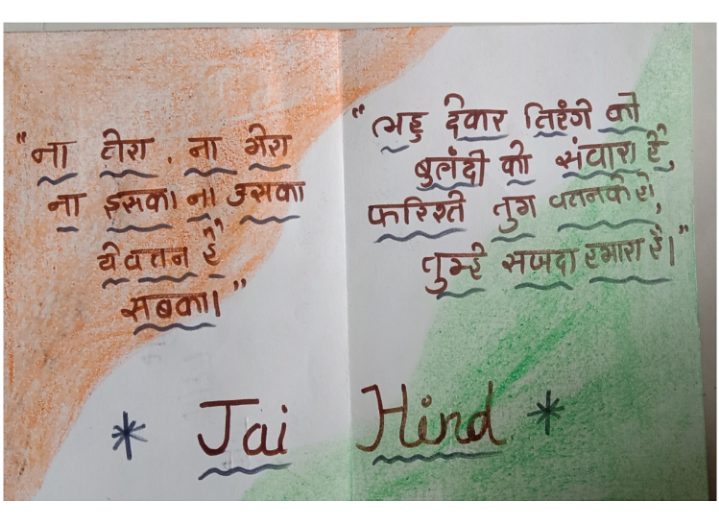 "ना तेरा, ना मेरा
ना इसका ना उसका
ये वतन है"
सबका।"
"लहु देकर तिरंगे को
बुलंदी को संवारा है,
फरिश्ते तुम वतन के हो,
तुम्हे सजदा हमारा है।"
* Jai Hind *